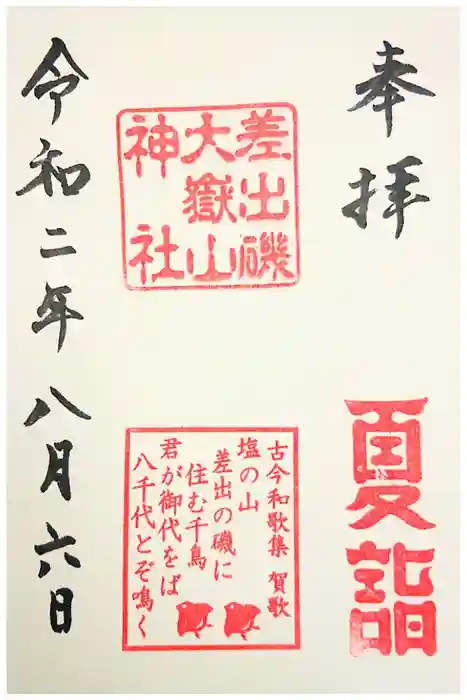 奉拝
夏詣
差出磯
大嶽山
神社
古今和歌集 賀歌
塩の山
差出の磯に
住む千鳥
君が御代をば
八千代とぞ鳴く
令和二年八月六日